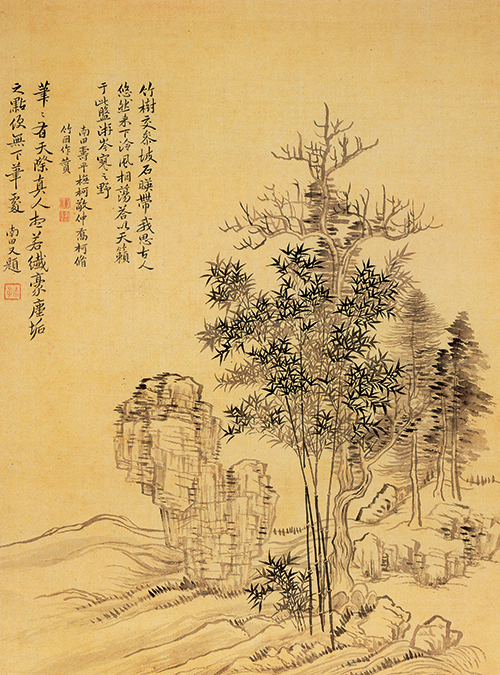 竹樹交參坡石暎帶我思古人
悠然來下泠風相蕩荅以天籟
于此盤游岑寂之野
南田壽平橅柯敬仲喬柯脩
竹因作贊
筆〻有天際真人想若纖豪塵垢
之點便無下筆處 南田又題